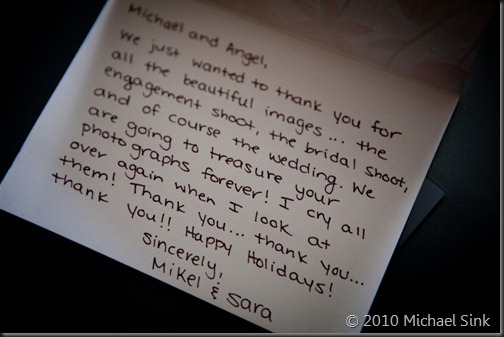 Michael and Angel,
We just wanted to thank you for
all the beautiful images... the
engagement shoot, the bridal shoot,
and of course the wedding. We
are going to treasure your
photographs forever! I cry all
over again when I look at
them! Thank you... thank you...
thank you!! Happy Holidays!
Sincerely,
Mikel & Sara
© 2010 Michael Sink